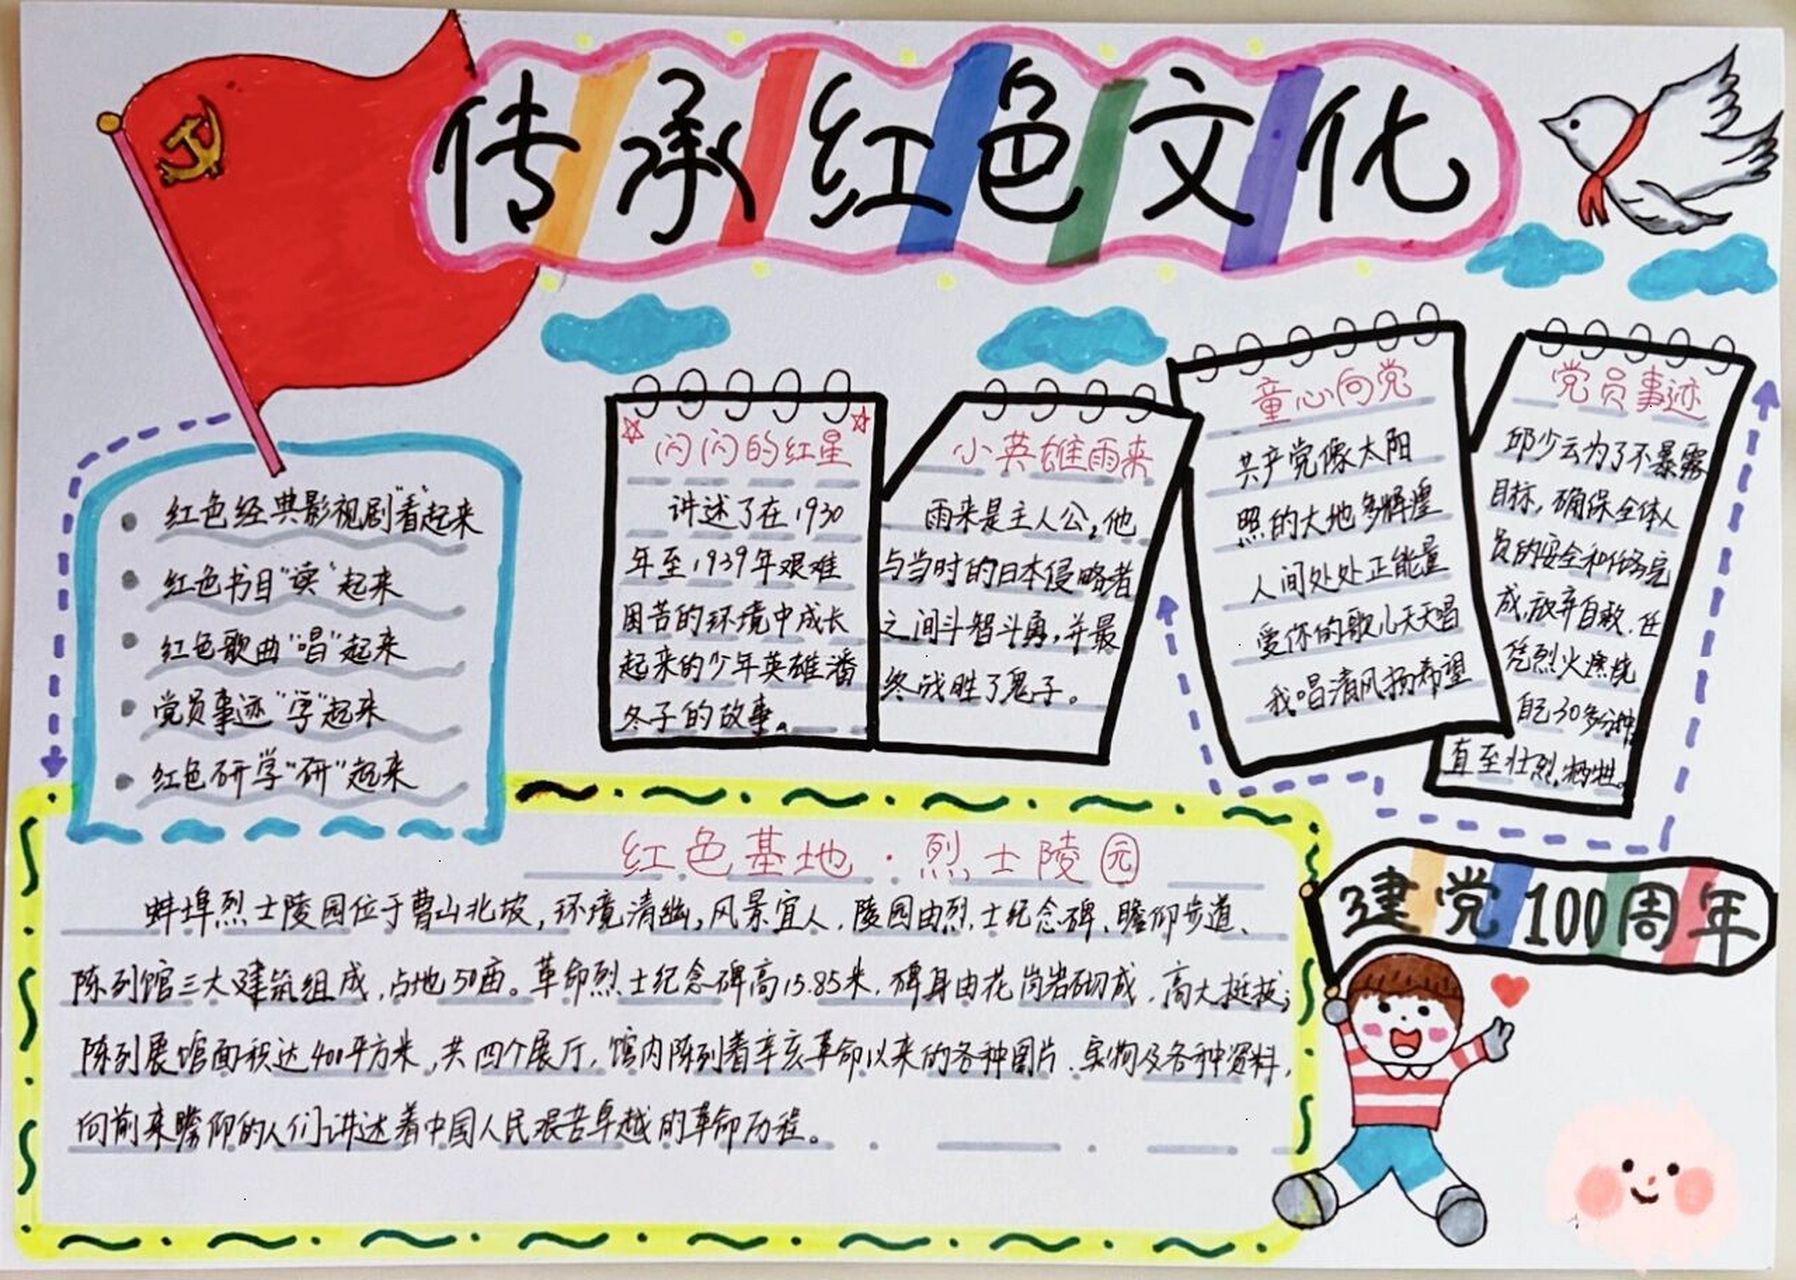 传承红色文化
红色经典影视剧"看"起来
红色书目"读"起来
红色歌曲"唱"起来
党员事迹"学"起来
红色研学"研"起来
闪闪的红星
讲述了在1930
年至1939年艰难
困苦的环境中成长
起来的少年英雄潘
冬子的故事。
小英雄雨来
雨来是主人公,他
与当时的日本侵略者
之间斗智斗勇,并最
终战胜了鬼子。
童心向党
共产党像太阳
照的大地多辉煌
人间处处正能量
爱你的歌儿天天唱
我唱清风扬希望
党员事迹
邱少云为了不暴露
目标,确保全体人
员的安全和任务完
成,放弃自救.任
凭烈火燃烧
自己30多分钟
直至壮烈.牺牲。
红色基地·烈士陵园
蚌埠烈士陵园位于曹山北坡,环境清幽,风景宜人.陵园由烈士纪念碑、瞻仰步道、
陈列馆三大建筑组成,占地50亩。革命烈士纪念碑高15.85米.碑身由花岗岩砌成.高大挺拔;
陈列展馆面积达400平方米,共四个展厅.馆内陈列着辛亥革命以来的各种图片.实物及各种资料,
向前来瞻仰的人们讲述着中国人民艰苦卓越的革命历程。
建党100周年